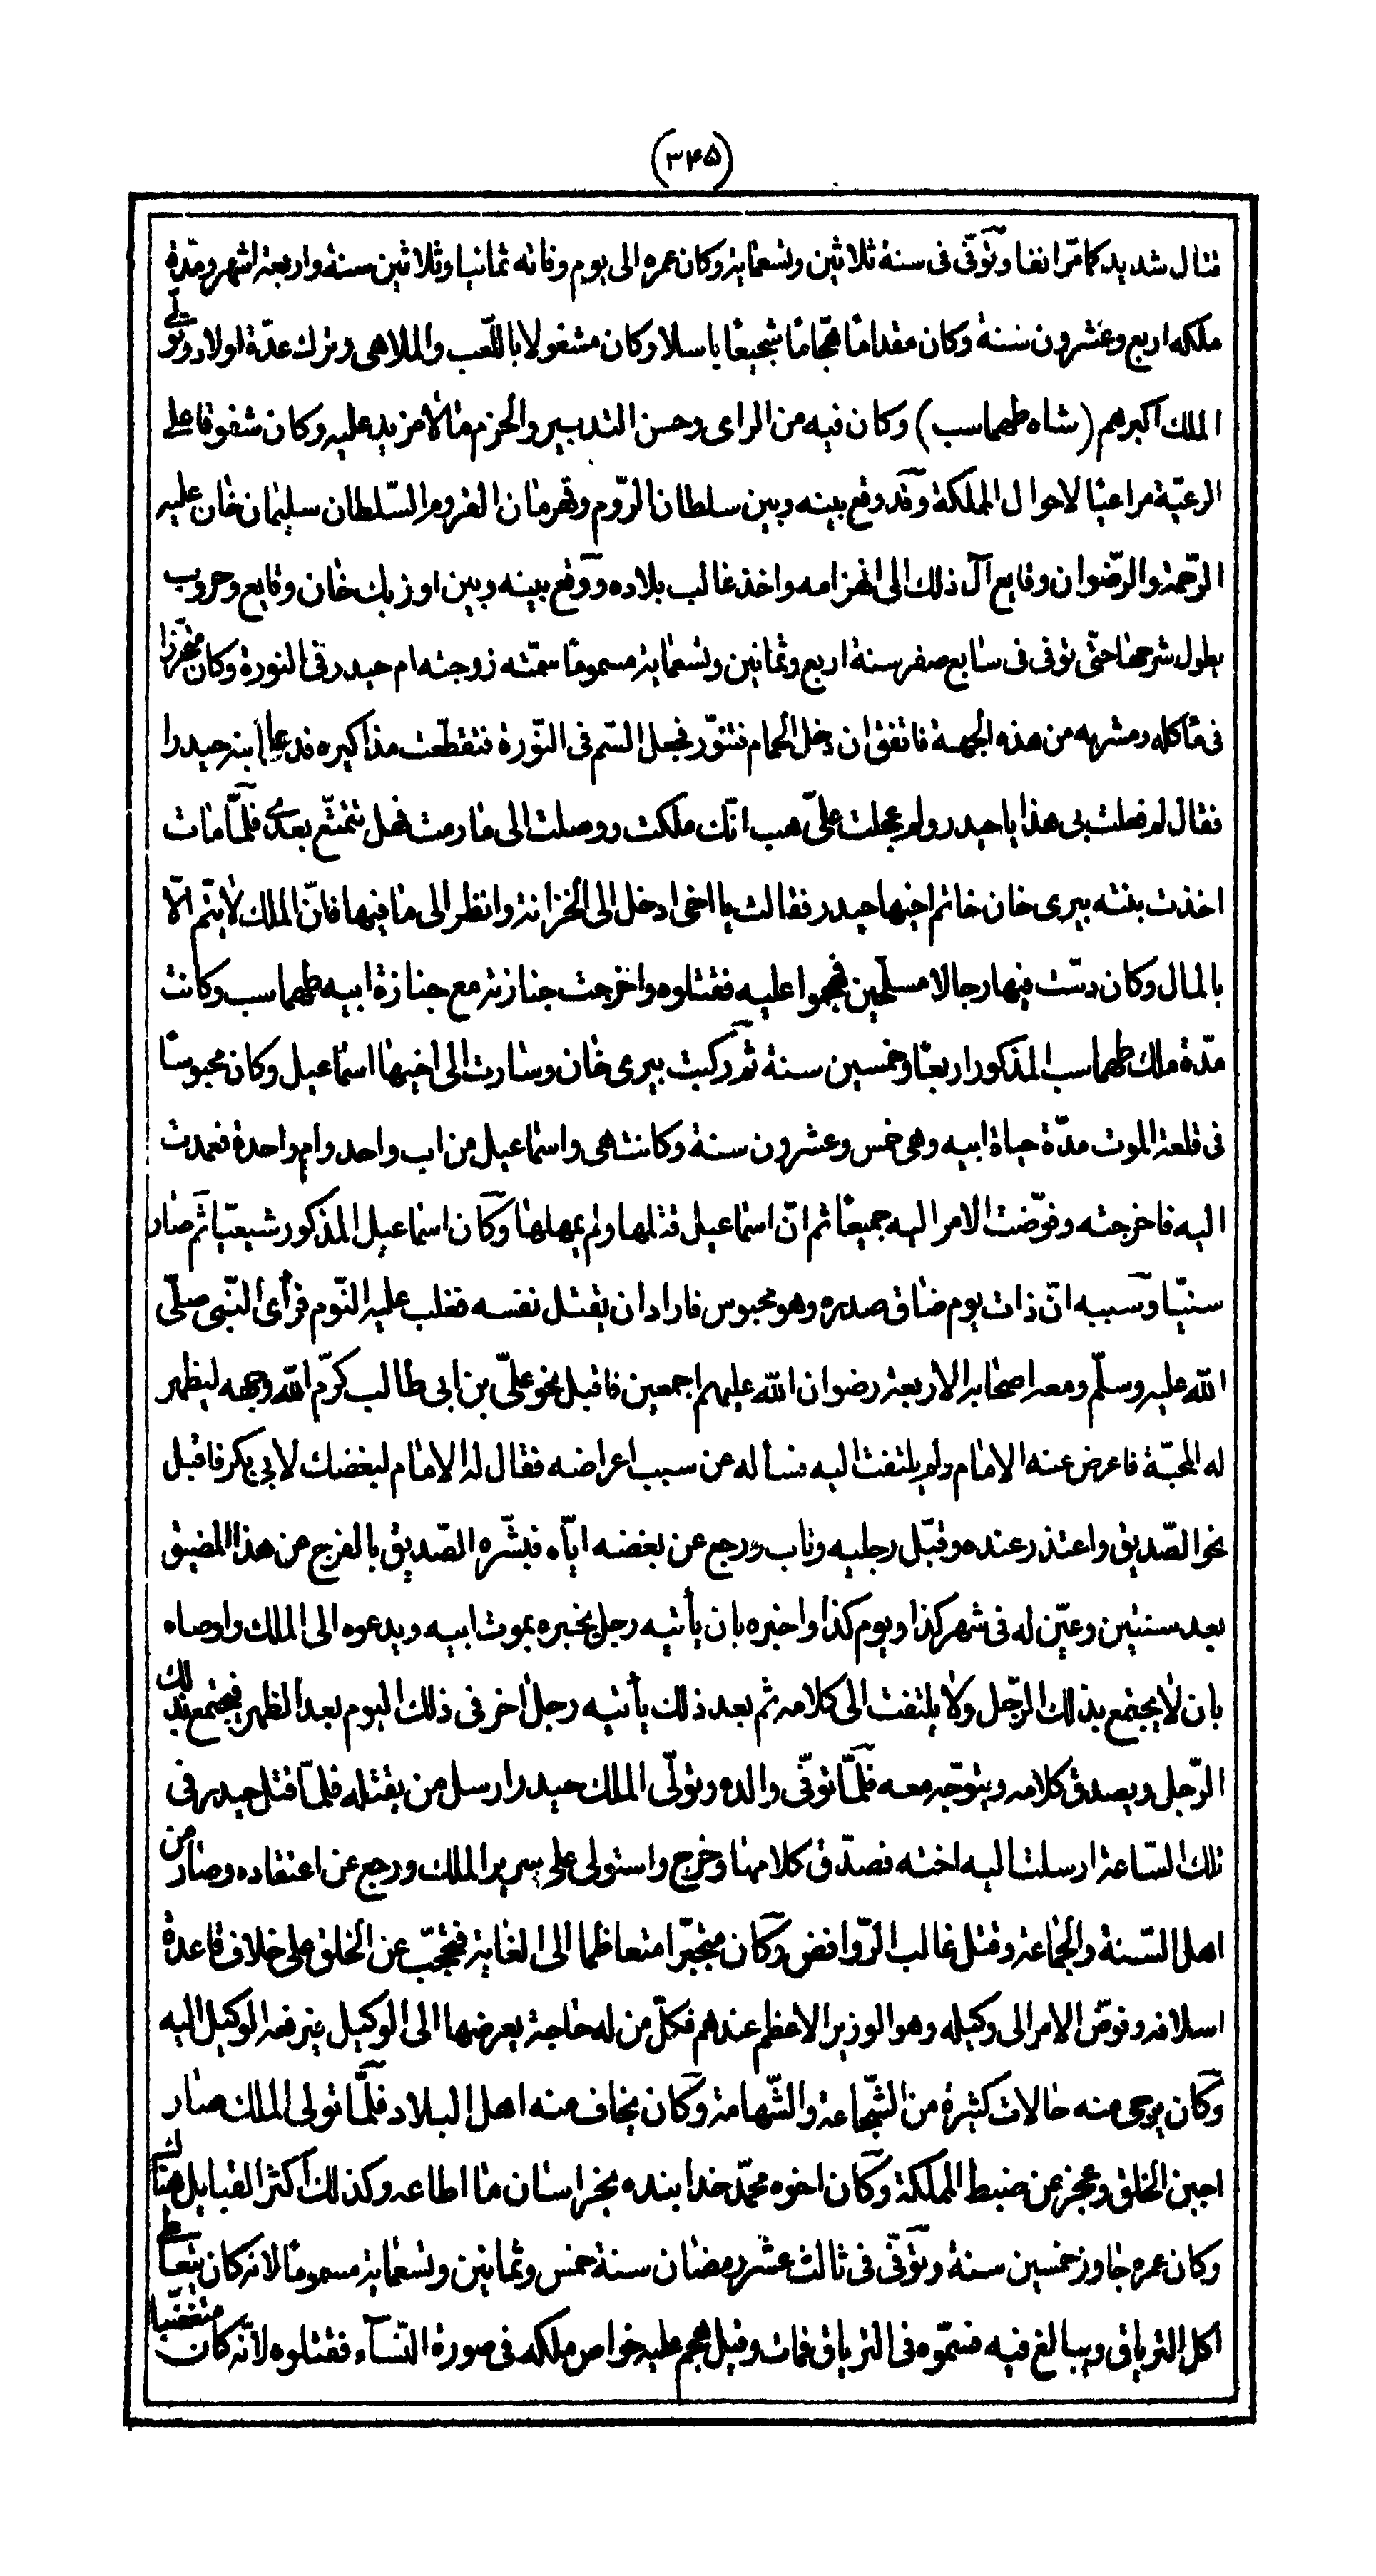 (٣٤٥)
قتال شديد كما مرّ انفا وتوفّى فى سنة ثلاثين وتسعماية وكان عمره الى يوم وفاته ثمانيا وثلاثين سنة واربعة اشهر ومدّة
ملكه اربع وعشرون سنة وكان مقدامًا هجّامًا شجيعًا باسلا وكان مشغولا باللّعب والملاهى وترك عدّة اولاد وتولّى
الملك اكبرهم (شاه طهماسب) وكان فيه من الراى وحسن التدبير والحزم ما لا مزيد عليه وكان شفوقا على
الرعيّة مراعيًا لاحوال المملكة وقد وقع بينه وبين سلطان الرّوم وقهرمان القروم السّلطان سليمان خان عليه
الرّحمة والرّضوان وقايع آل ذلك الى انهزامه واخذ غالب بلاده ووقع بينه وبين اوزبك خان وقايع وحروب
يطول شرحها حتّى توفى فى سابع صفر سنة اربع وثمانين وتسعماية مسمومًا سمّته زوجته ام حيدر فى النورة وكان متحرّزا
فى ماكله ومشربه من هذه الجهة فاتفق ان دخل الحمام فتنوّر فجعل السّم فى النّورة فتقطّعت مذاكيره فدعا ابنه حيدرا
فقال لم فعلت بى هذا يا حيدر ولم عجلت علىّ هب انّك ملكت ووصلت الى ما رمت فهل تتمتّع بعدى فلمّا مات
اخذت بنته بيرى خان خاتم اخيها حيدر فقالت يا اخى ادخل الى الخزانة وانظر الى ما فيها فانّ الملك لا يتم الّا
بالمال وكان دسّت فيها رجالا مسلّحين فهجموا عليه فقتلوه واخرجت جنازته مع جنازة ابيه طهماسب وكانت
مدّة ملك طهماسب المذكور اربعًا وخمسين سنة ثم ركبت بيرى خان وسارت الى اخيها اسماعيل وكان محبوسًا
فى قلعة الموت مدّة حياة ابيه وهى خمس وعشرون سنة وكانت هى واسماعيل من اب واحد وام واحدة فعمدت
اليه فاخرجته وفوّضت الامر اليه جميعًا ثم انّ اسماعيل قتلها ولم يمهلها وكان اسماعيل المذكور شيعيّا ثم صار
سنيّا وسببه انّ ذات يوم ضاق صدره وهو محبوس فاراد ان يقتل نفسه فغلب عليه النّوم فرأى النّبى صلّى
الله عليه وسلّم ومعه اصحابه الاربعة رضوان الله عليهم اجمعين فاقبل نحو علىّ بن ابى طالب كرّم الله وجهه ليظهر
له المحبّة فاعرض عنه الامام ولم يلتفت اليه فسأله عن سبب اعراضه فقال له الامام لبغضك لابى بكر فاقبل
نحو الصّديق واعتذر عنده وقبّل رجليه وتاب ورجع عن بغضه ايّاه فبشّره الصّديق بالفرج من هذا المضيق
بعد سنتين وعيّن له فى شهر كذا ويوم كذا واخبره بان يأتيه رجل يخبره بموت ابيه ويدعوه الى الملك واوصاه
بان لا يجتمع بذلك الرّجل ولا يلتفت الى كلامه ثم بعد ذلك يأتيه رجل اخر فى ذلك اليوم بعد الظهر فيجتمع بذلك
الرّجل ويصدق كلامه ويتوجّه معه فلمّا توفّى والده وتولّى الملك حيدر ارسل من يقتله فلمّا قتل حيدر فى
تلك السّاعة ارسلت اليه اخته فصدّق كلامها وخرج واستولى على سرير الملك ورجع عن اعتقاده وصار من
اهل السّنة والجماعة وقتل غالب الرّوافض وكان متجبّرا متعاظما الى الغاية فتحجّب عن الخلق على خلاف قاعدة
اسلافه وفوّض الامر الى وكيله وهو الوزير الاعظم عندهم فكلّ من له حاجة يعرضها الى الوكيل ثم يرفعه الوكيل اليه
وكان يرجى منه حالات كثيرة من الشّجاعة والشّهامة وكان يخاف منه اهل البلاد فلمّا تولى الملك صار
اجبن الخلق وعجز عن ضبط المملكة وكان اخوه محمّد خدابنده بخراسان ما اطاعه وكذلك اكثر القبايل هناك
وكان عمره جاوز خمسين سنة وتوفّى فى ثالث عشر رمضان سنة خمس وثمانين وتسعماية مسمومًا لانه كان يتعاطى
اكل الترياق ويبالغ فيه فسمّوه فى الترياق فمات وقيل هجم عليه خواص ملكه فى صورة النّسآء فقتلوه لانّه كان متغضّبا